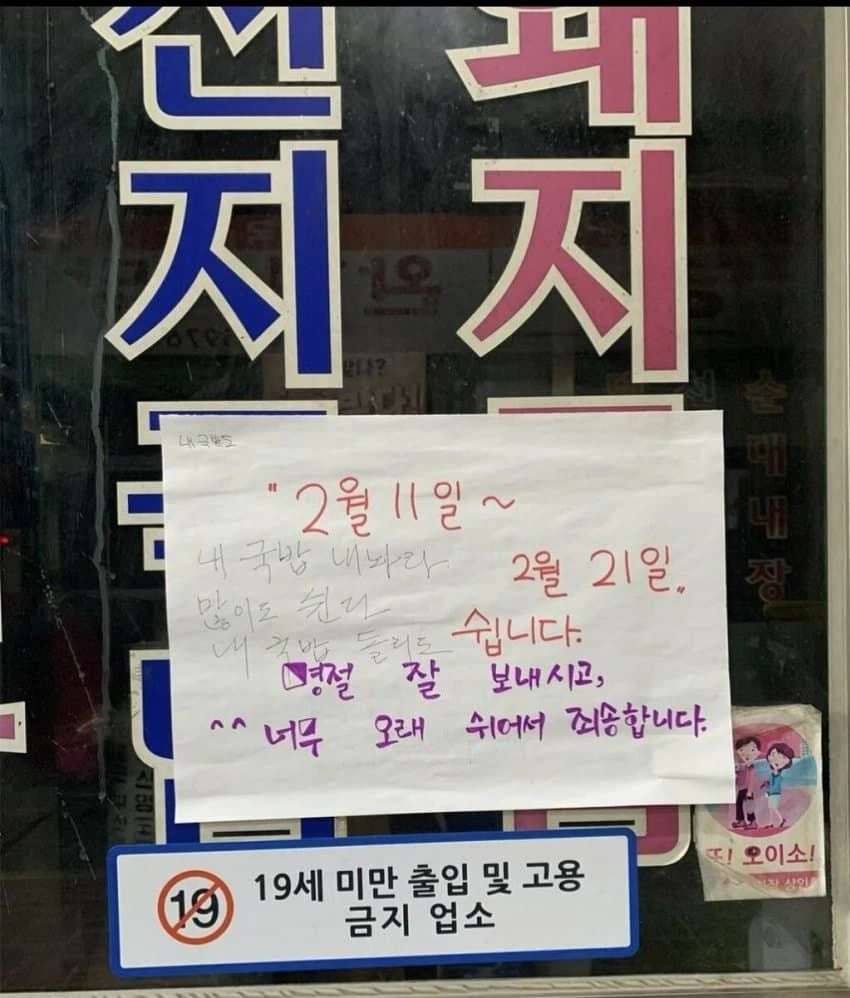 전
돼
지
지
내 국밥도
"2월 11일 ~
2월 21일"
쉽니다.
내 국밥 내놔라
많이도 쉰다
내 국밥 돌리도
명절 잘 보내시고,
^^ 너무 오래 쉬어서 죄송합니다.
순대내장
또! 오이소!
19
19세 미만 출입 및 고용
금지 업소